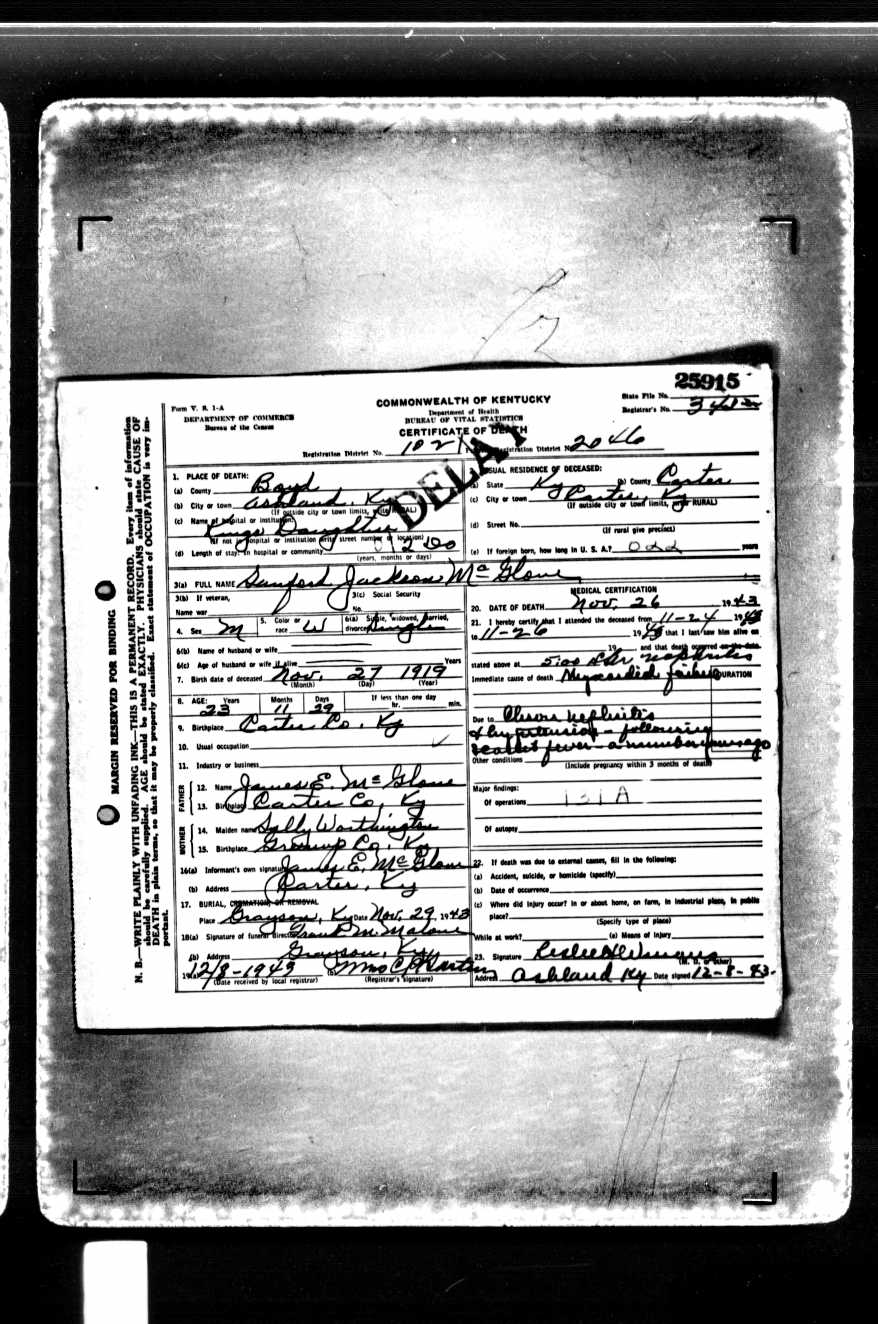 25915
Form V. S. 1-A
DEPARTMENT OF COMMERCE
Bureau of the Census
COMMONWEALTH OF KENTUCKY
Department of Health
BUREAU OF VITAL STATISTICS
CERTIFICATE OF DEATH
State File No.
Registrar's No.
Registration District No. 102 Registration District No. 2046
DELAY
MARGIN RESERVED FOR BINDING
N. B.—WRITE PLAINLY WITH UNFADING INK—THIS IS A PERMANENT RECORD. Every item of information
should be carefully supplied. AGE should be stated EXACTLY. PHYSICIANS should state CAUSE OF
DEATH in plain terms, so that it may be properly classified. Exact statement of OCCUPATION is very im-
portant.
1. PLACE OF DEATH:
(a) County Boyd
(b) City or town Ashland, Ky
(If outside city or town limits, write RURAL)
(c) Name of hospital or institution:
Kings Daughters
(If not in hospital or institution write street number or location)
(d) Length of stay: In hospital or community
(years, months or days)
USUAL RESIDENCE OF DECEASED:
(a) State Ky (b) County Carter
(c) City or town Carter, Ky
(If outside city or town limits, write RURAL)
(d) Street No.
(If rural give precinct)
(e) If foreign born, how long in U. S. A.? years
3(a) FULL NAME Sanford Jackson McGlone
3(b) If veteran,
Name war
3(c) Social Security
No.
4. Sex M
5. Color or
race W
6(a) Single, widowed, married,
divorced Single
6(b) Name of husband or wife
6(c) Age of husband or wife if alive Years
7. Birth date of deceased Nov. 27 1919
(Month) (Day) (Year)
8. AGE: Years Months Days If less than one day
23 11 29 hr. min.
9. Birthplace Carter Co, Ky
10. Usual occupation
11. Industry or business
FATHER
12. Name James E. McGlone
13. Birthplace Carter Co, Ky
MOTHER
14. Maiden name Sally Worthington
15. Birthplace Greenup Co, Ky
16(a) Informant's own signature James E. McGlone
(b) Address Carter, Ky
17. BURIAL, CREMATION, OR REMOVAL
Place Grayson, Ky Date Nov. 29, 1943
18(a) Signature of funeral director Frank M. Malone
(b) Address Grayson, Ky
19(a) 12/8-1943 (b) Mrs C P
(Date received by local registrar) (Registrar's signature)
MEDICAL CERTIFICATION
20. DATE OF DEATH Nov. 26 1943
21. I hereby certify that I attended the deceased from 11-24 1943
to 11-26 1943 that I last saw him alive on
19 and that death occurred on the date
stated above at 5:00
Immediate cause of death Myocardial failure DURATION
Due to nephritis
& hypertension - following
scarlet fever - a number years ago
Other conditions
(Include pregnancy within 3 months of death)
Major findings:
Of operations 131A
Of autopsy
22. If death was due to external causes, fill in the following:
(a) Accident, suicide, or homicide (specify)
(b) Date of occurrence
(c) Where did injury occur? In or about home, on farm, in industrial place, in public
place?
(Specify type of place)
While at work? (e) Means of Injury
23. Signature Leslie H
(M. D. or other)
Address Ashland Ky Date signed 12-8-43.